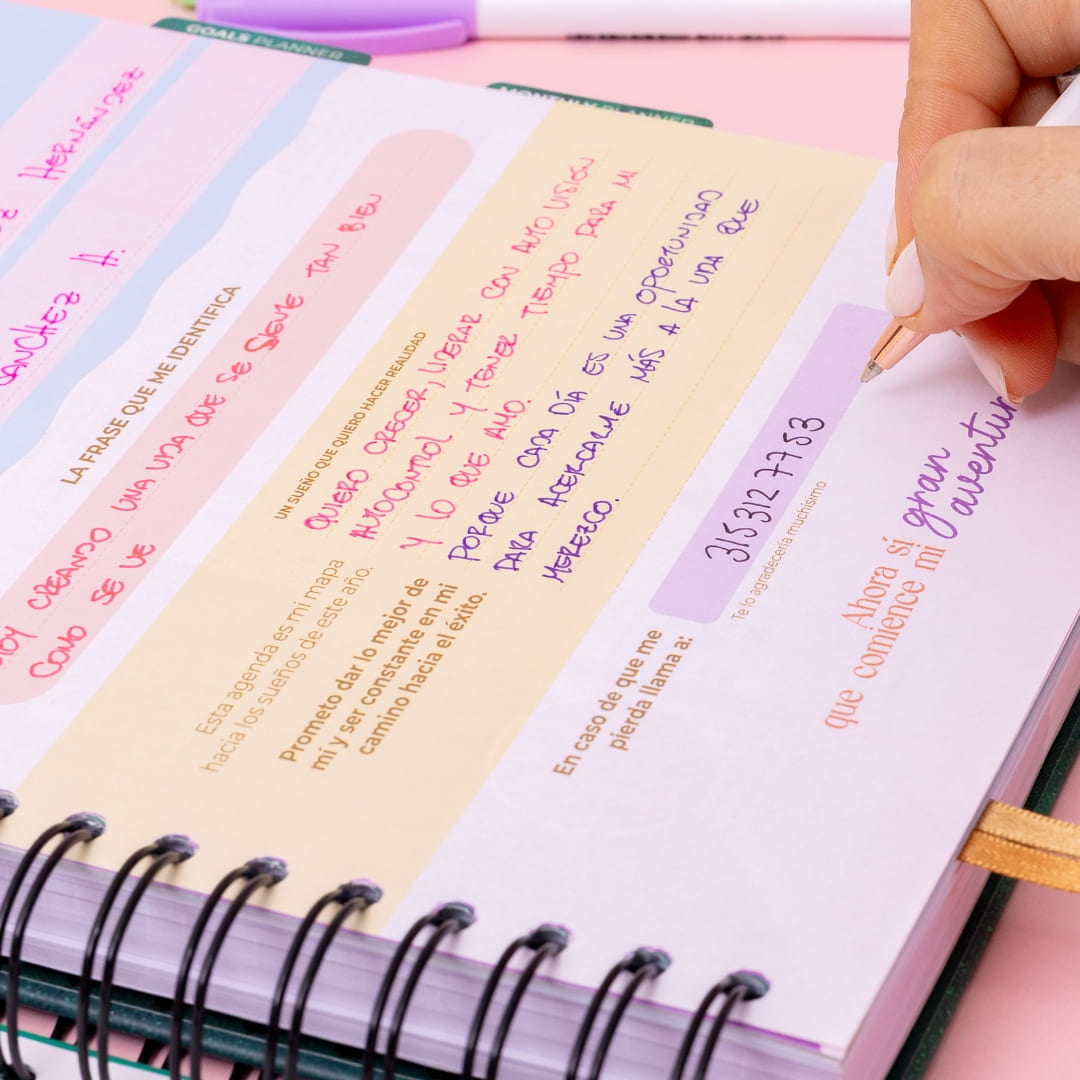 GOALS PLANNER
MONTHLY PLANNER
HERNÁNDEZ
SANCHEZ H.
LA FRASE QUE ME IDENTIFICA
CREANDO UNA VIDA QUE SE SIENTE TAN BIEN
COMO SE VE
UN SUEÑO QUE QUIERO HACER REALIDAD
QUIERO CRECER, LIDERAR CON AUTO VISIÓN
AUTOCONTROL Y TENER TIEMPO PARA MI
Y LO QUE AMO.
PORQUE CADA DÍA ES UNA OPORTUNIDAD
PARA ACERCARME MÁS A LA VIDA QUE
MEREZCO.
Esta agenda es mi mapa
hacia los sueños de este año.
Prometo dar lo mejor de
mí y ser constante en mi
camino hacia el éxito.
En caso de que me
pierda llama a:
315 312 7753
Te lo agradecería muchísimo
Ahora sí gran
que comience mi aventur